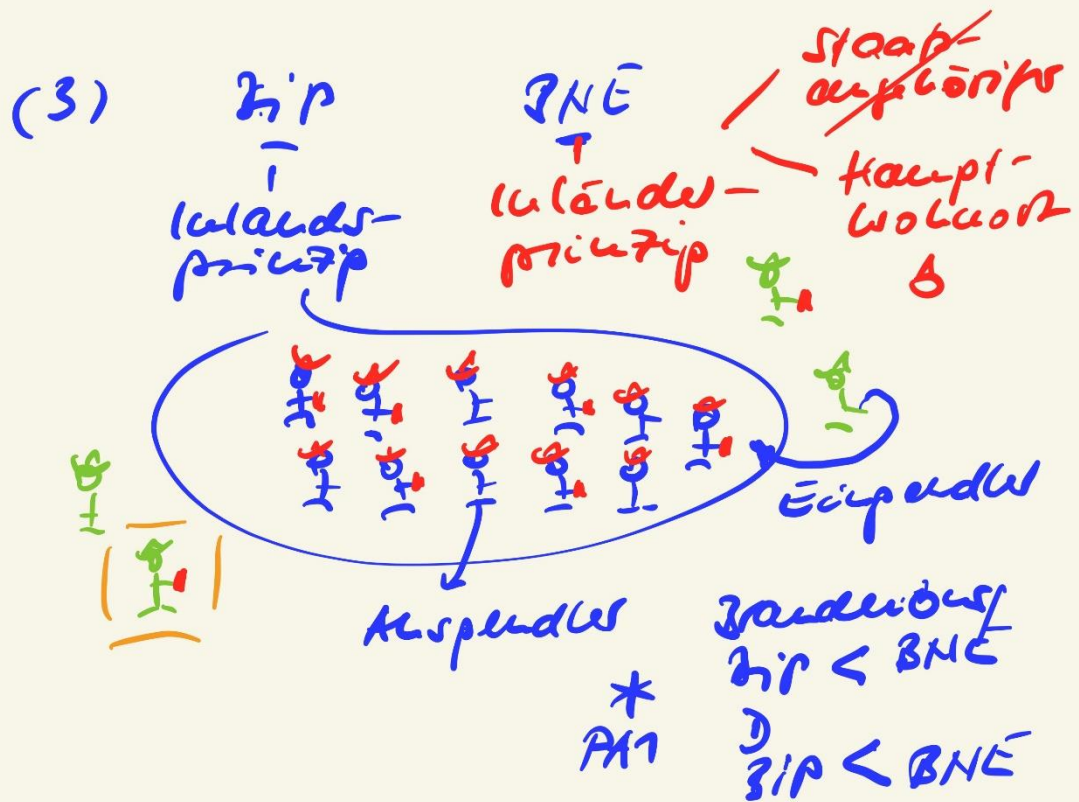 (3) BiP BNE
Inlands-
prinzip
Inländer-
prinzip
Staats-
angehöriger
Haupt-
wohnort
Einpendler
Auspendler
Brandenburg
BiP < BNE
*
PA1
D
BiP < BNE